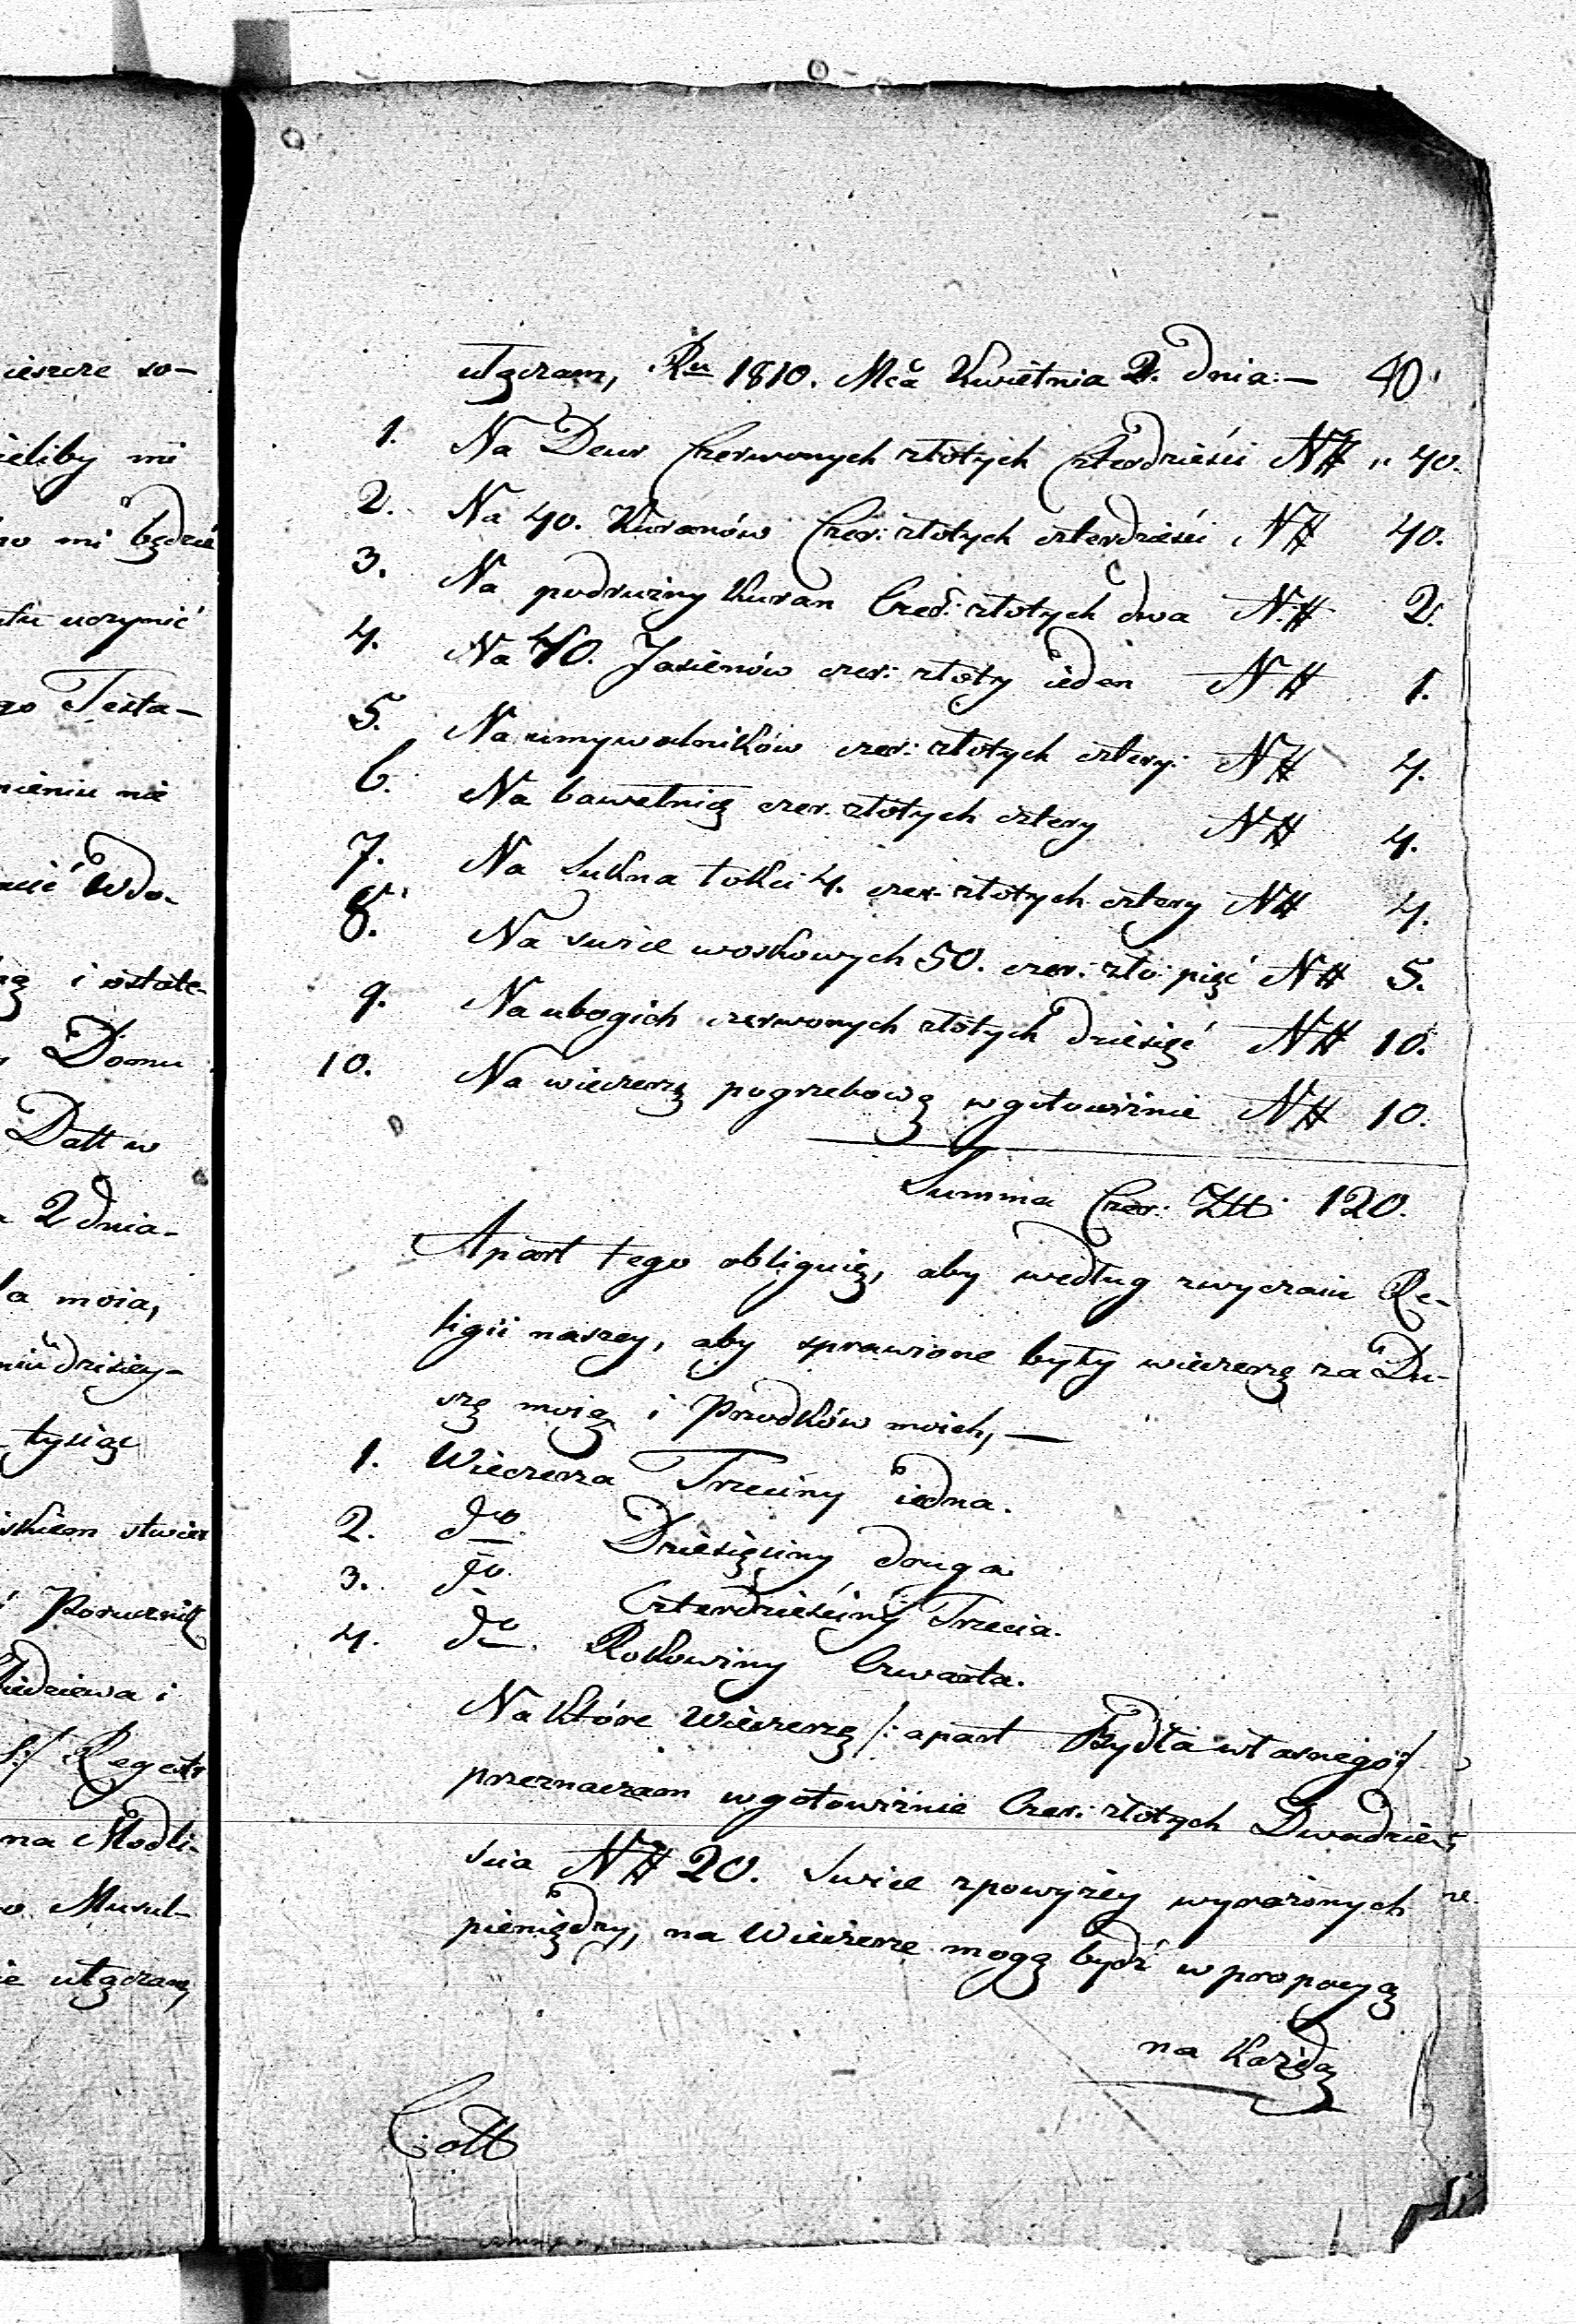 ieszcze so-
ieliby mi
no mi będzie
uczynić
go Testa-
mieniu nie
Wdo-
i ostate-
Domu
Datt w
2 dnia-
moia,
dzisiey-
tysiąc
stwier
Porucznik
i
Regestr
na Modli-
Musul-
ie ułączam,
ułączam, Ru 1810. Mca Kwietnia 2. dnia:— 40
1. Na Deur Czerwonych złotych Czterdzieści N# „ 40.
2. Na 40. Kuranów Czer: złotych czterdzieści N# 40.
3. Na podrużny Kuran Czer: złotych dwa N# 2.
4. Na 40. Jasienów czer: złoty ieden N# 1.
5. Na umywalników czer: złotych cztery: N# 4.
6. Na bawełnię czer. złotych cztery N# 4.
7. Na Sukna łokci 4. czer: złotych cztery N# 4.
8. Na swiec woskowych 50. czer: zło: pięć N# 5.
9. Na ubogich czerwonych złotych dziesięć N# 10.
10. Na wieczerzę pogrzebową w gotowiznie N# 10.
Summa Czer: Złł 120.
Apart tego obliguię, aby według zwyczaiu Re-
ligii naszey, aby sprawione były wieczerzę za Du-
szę moię i Przodków moich, —
1. Wieczerza Trzeciny iedna.
2. do. Dziesięciny druga
3. do. Czterdzieściny Trzecia.
4. do. Rokowiny Czwarta.
Na które wieczerzę /: apart Bydła własnego :/
przeznaczam w gotowiznie Czer: złotych Dwadzieś
scia N# 20. Swiec zpowyżey wyrażonych
pieniędzy, na Wieczerze mogą bydź w proporcyą
na każdą